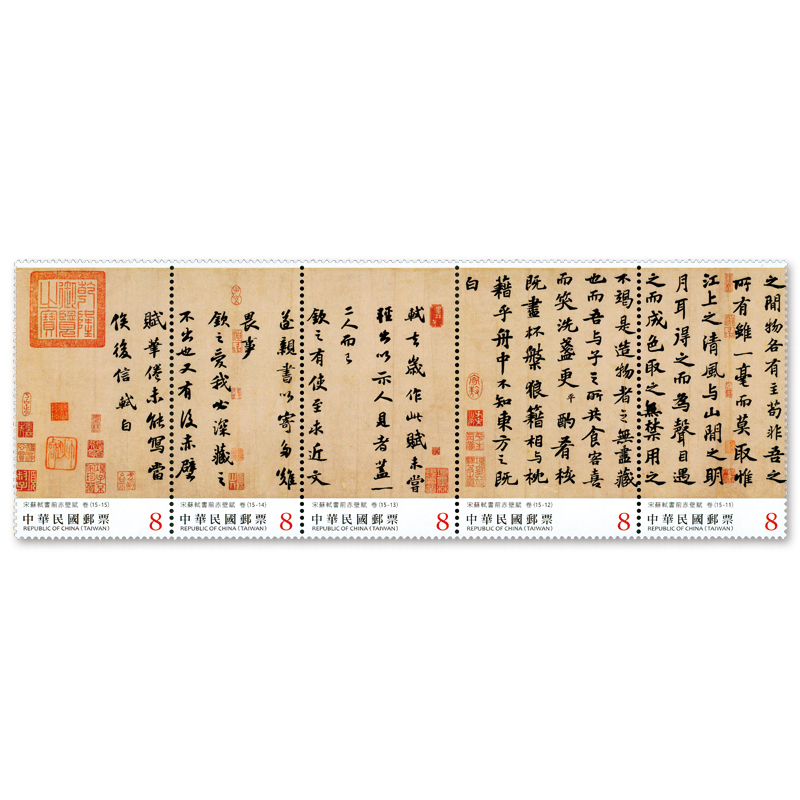 之間物各有主苟非吾之
所有雖一毫而莫取惟
江上之清風与山間之明
月耳得之而為聲目遇
之而成色取之無禁用之
宋蘇軾書前赤壁賦 卷(15-11)
中華民國郵票
REPUBLIC OF CHINA (TAIWAN)
8
不竭是造物者之無盡藏
也而吾与子之所共食客喜
而笑洗盞更平酌肴核
既盡杯槃狼籍相与枕
藉乎舟中不知東方之既
白
宋蘇軾書前赤壁賦 卷(15-12)
中華民國郵票
REPUBLIC OF CHINA (TAIWAN)
8
軾去歲作此賦未嘗
輕出以示人見者蓋一
二人而已
欽之有使至求近文
宋蘇軾書前赤壁賦 卷(15-13)
中華民國郵票
REPUBLIC OF CHINA (TAIWAN)
8
遂親書以寄多難
畏事
欽之愛我必深藏之
不出也又有後赤壁
宋蘇軾書前赤壁賦 卷(15-14)
中華民國郵票
REPUBLIC OF CHINA (TAIWAN)
8
賦筆倦未能寫當
俟後信軾白
乾隆
御覽
之寶
宋蘇軾書前赤壁賦 卷(15-15)
中華民國郵票
REPUBLIC OF CHINA (TAIWAN)
8